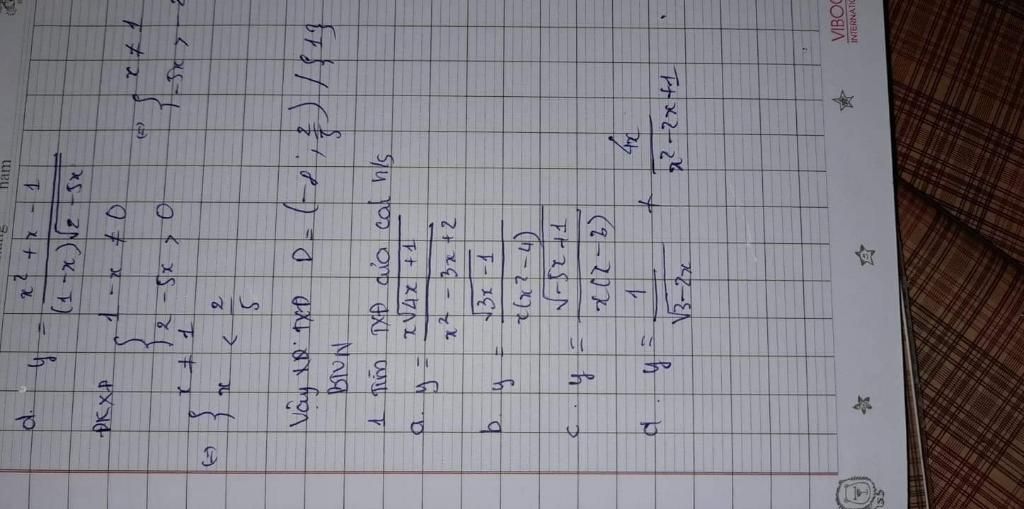 d. y = (x² + x - 1) / ((1-x)√(2-5x))
ĐKXĐ { 1 - x ≠ 0 (=) { x ≠ 1
{ 2 - 5x > 0 { -5x >
(=) { x ≠ 1
{ x < 2/5
Vậy TXĐ D = (-∞; 2/5) / {1}
BTVN
1 Tìm TXĐ của các h/s
a. y = x√(4x+1) / (x² - 3x + 2)
b. y = √(3x-1) / (x(x²-4))
c. y = √(-5x+1) / (x(2-3))
d. y = 1/√(3-2x) + 4x/(x²-2x+1)
VIBOO
INTERNATIO